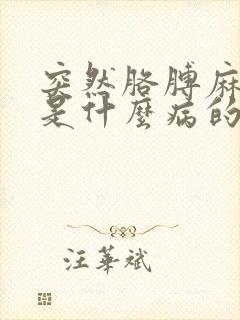 突然胳膊麻
是什麼病的
汪華斌